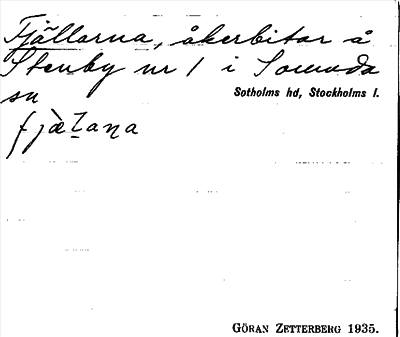 Fjällarna, åkerbitar å
Stenby nr 1 i Sorunda
sn
Sotholms hd, Stockholms l.
fjàɽaṉa
GÖRAN ZETTERBERG 1935.